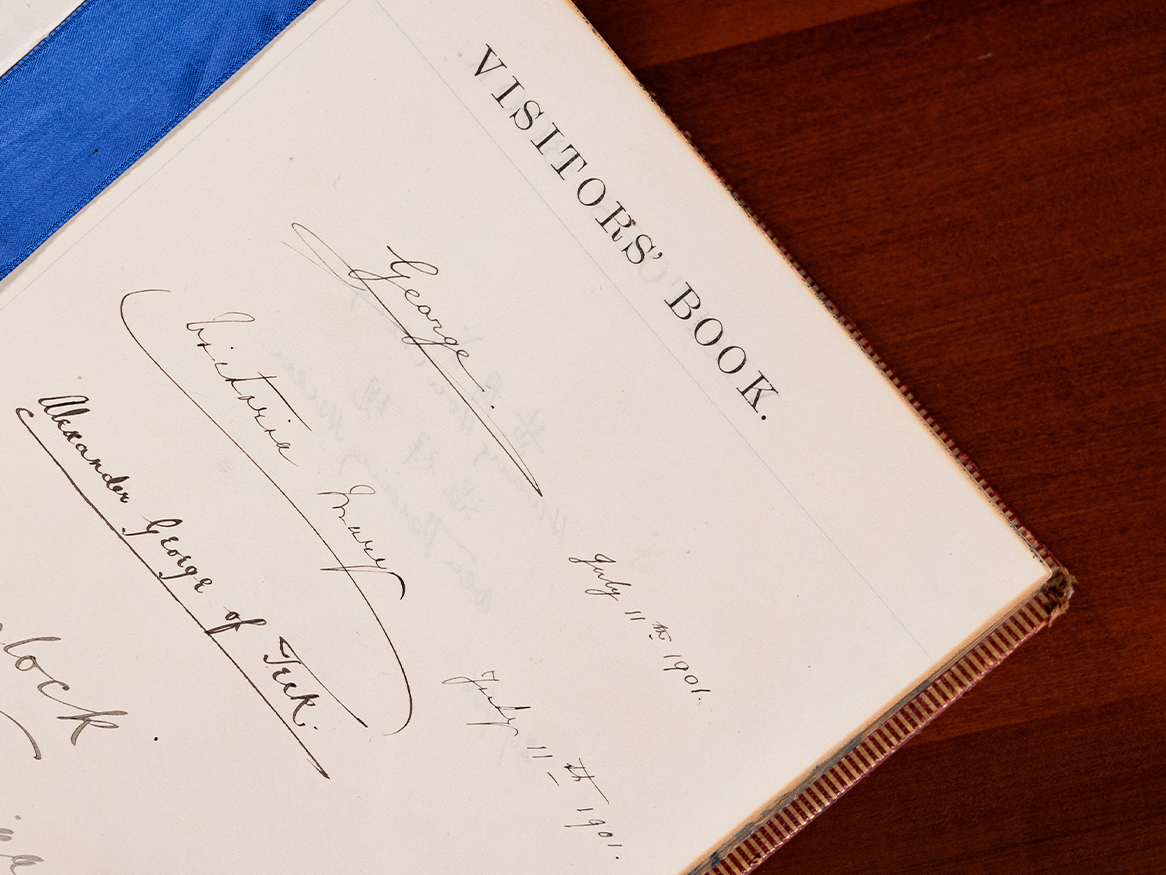 VISITORS' BOOK.
George. July 11th 1901.
Victoria Mary July 11th 1901.
Alexander George of Teck.
lock